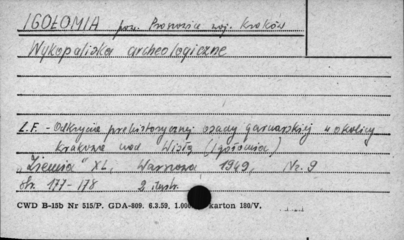 IGOŁOMIA pow. Proszowice woj. Kraków
Wykopaliska archeologiczne
L.F. - Odkrycie prehistorycznej osady garncarskiej w okolicy
Krakowa nad Wisłą (Igołomia)
"Ziemia" XL, Warszawa 1949, Nr. 9
Str. 177-178 2 ilustr.
CWD B-15b Nr 515/P. GDA-809. 6.3.59, 1.000 karton 180/V.